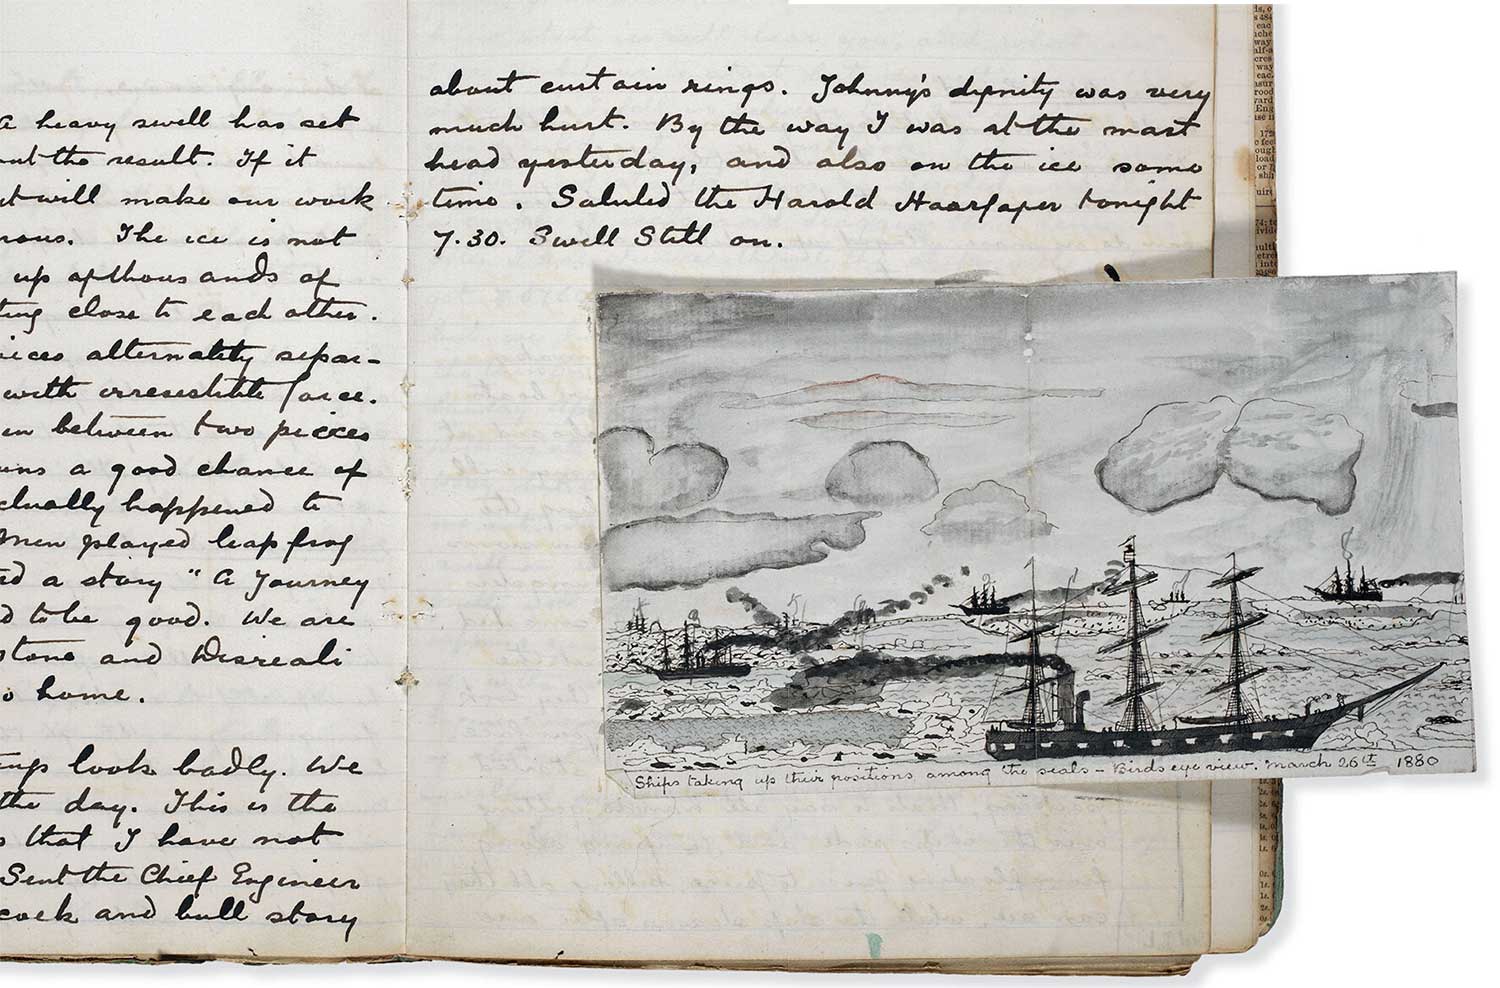 a heavy swell has set
out the result. If it
it will make our work
rous. The ice is not
up of thousands of
ting close to each other.
ieces alternately separ-
with irresistible force.
in between two pieces
uns a good chance of
ctually happened to
men played leap frog
ed a story "A Journey
d to be good. We are
stone and Disreali
o home.
ings look badly. We
the day. This is the
s that I have not
Sent the Chief Engineer
cock and bull story
about curtain rings. Johnny's dignity was very
much hurt. By the way I was at the mast
head yesterday, and also on the ice some
time. Saluted the Harald Haarfager tonight
7.30. Swell Still on.
Ships taking up their positions among the seals - Birds eye view. March 26th 1880